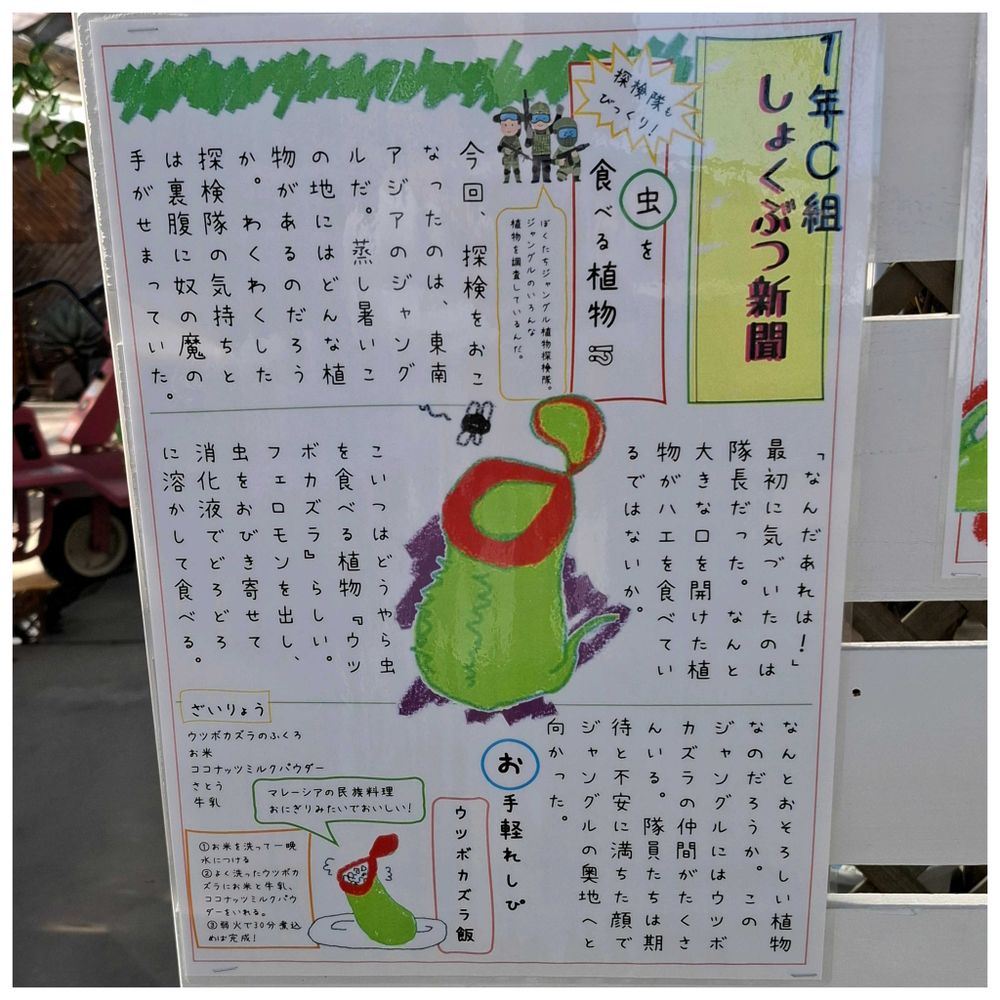 1年C組
しょくぶつ新聞
探検隊も
びっくり!
虫を
食べる植物
ぼくたちジャングル植物探検隊。
ジャングルのいろんな
植物を調査しているんだ。
今回、探検をおこ
なったのは、東南
アジアのジャング
ルだ。蒸し暑いこ
の地にはどんな植
物があるのだろう
か。わくわくした
探検隊の気持ちと
は裏腹に奴の魔の
手がせまっていた。
「なんだあれは!」
最初に気づいたのは
隊長だった。なんと
大きな口を開けた植
物がハエを食べてい
るではないか。
こいつはどうやら虫
を食べる植物『ウツ
ボカズラ』らしい。
フェロモンを出し、
虫をおびき寄せて
消化液でどろどろ
に溶かして食べる。
なんとおそろしい植物
なのだろうか。この
ジャングルにはウツボ
カズラの仲間がたくさ
んいる。隊員たちは期
待と不安に満ちた顔で
ジャングルの奥地へと
向かった。
お手軽れしぴ
ウツボカズラ飯
ざいりょう
ウツボカズラのふくろ
お米
ココナッツミルクパウダー
さとう
牛乳
マレーシアの民族料理
おにぎりみたいでおいしい!
①お米を洗って一晩
水につける
②よく洗ったウツボカ
ズラにお米と牛乳、
ココナッツミルクパウ
ダーをいれる。
③弱火で30分煮込
めば完成!